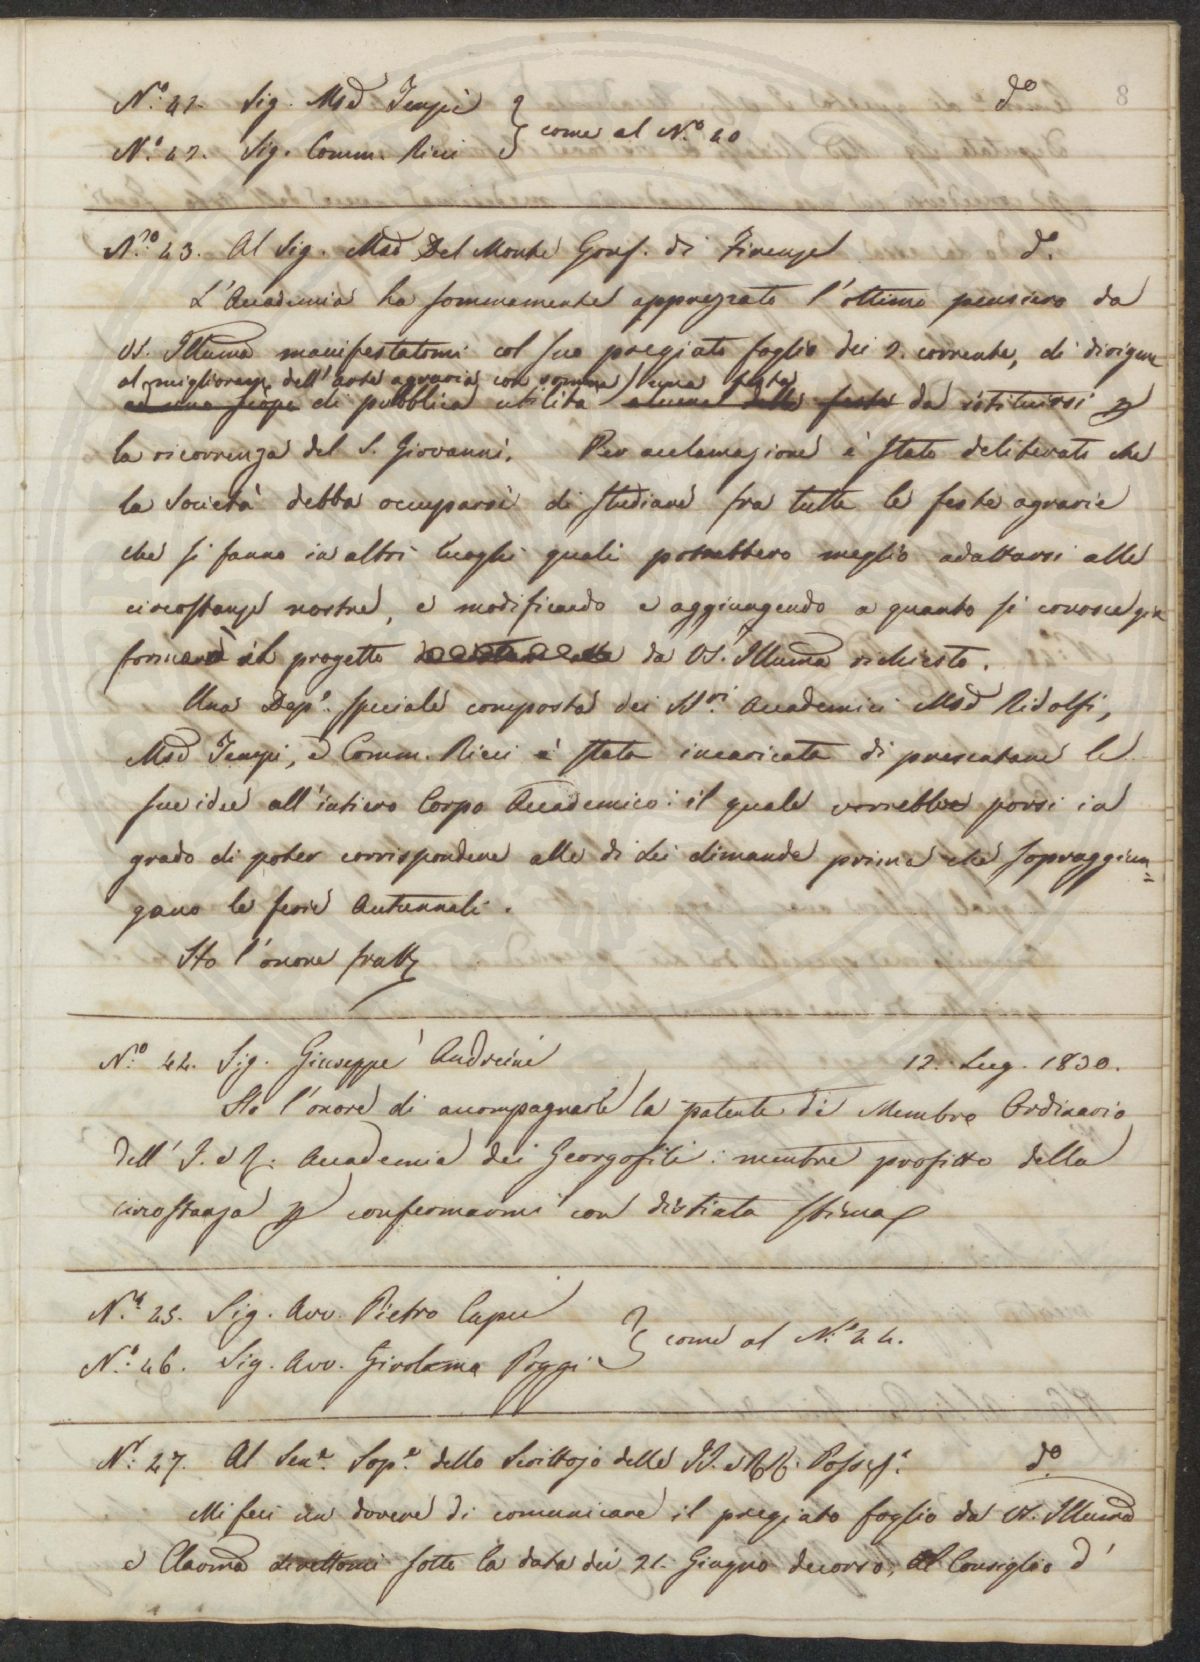 8
N.º 41. Sig. Msē Tempi } dº
N.º 42. Sig. Comm. Ricci } come al N.º 40
N.º 43. Al Sig. Msē Del Monte Gonf. di Firenze dº.
L'Accademia ha sommamente apprezzato l'ottimo pensiero da
VS. Illuma manifestatomi col suo pregiato foglio dei 2. corrente, di dirigere
al miglioram. dell'arte agraria, con somma una festa
ad uno scopo di pubblica utilità alcuna delle feste da istituirsi p
la ricorrenza del S. Giovanni. Per acclamazione è stato deliberato che
la Società debba occuparsi di studiare fra tutte le feste agrarie
che si fanno in altri luoghi quali potrebbero meglio adattarsi alle
circostanze nostre, e modificando e aggiungendo a quanto si conosce già
formare il progetto da VS. Illuma richiesto.
Una Dep.e speciale composta dei SS.ri Accademici Msē Ridolfi,
Msē Tempi, e Comm. Ricci è stata incaricata di presentare le
sue idee all'intiero Corpo Accademico: il quale vorrebbe porsi in
grado di poter corrispondere alle di Lei dimande prima che sopraggiun=
gano le ferie Autunnali.
Ho l'onore fratt
N.º 44. Sig. Giuseppe Andreini 12. Lug. 1830.
Ho l'onore di accompagnarle la patente di Membro Ordinario
dell'I. e R. Accademia dei Georgofili: mentre profitto della
circostanza p confermarmi con distinta stima
N.º 45. Sig. Avv. Pietro Capei }
N.º 46. Sig. Avv. Girolamo Poggi } come al N.º 44.
N.º 47. Al Sen.e Sop.e dello Scrittojo delle II. e RR. Possess.i dº
Mi feci un dovere di comunicare il pregiato foglio da VS. Illuma
e Clarma direttomi sotto la data dei 21. Giugno decorso, al Consiglio d'